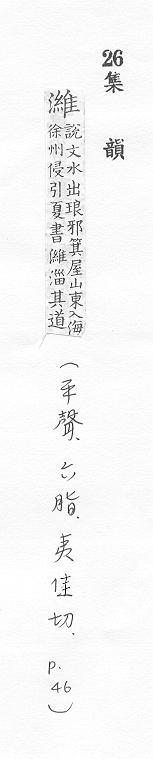 26集韻
濰說文水出琅邪箕屋山東入海
徐州侵引夏書濰淄其道
(平聲、六脂、夷隹切、p.46)